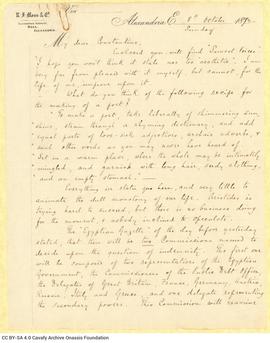 R. J. Moss & Co.
Alexandria.
Alexandria E. 8th October 1882
Sunday
My dear Constantine,
Enclosed you will find "Sunset Voices"
I hope you won't think it stale nor too æsthetic. I am
very far from pleased with it myself but cannot for the
life of me improve upon it.
What do you think of the following recipe for
the making of a poet?
"To make a poet, take liberally of shimmering sun-
shine, steam through a rhyming dictionary, and add
equal parts of love-sick adjectives, archaic adverbs, &
such other words as you may never have heard of
Set in a warm place, where the whole may be intimately
mingled, and garnish with long hair, seedy clothing,
and an empty stomach."
Everything in statu quo here, and very little to
animate the dull monotony of our life. Aristides is
trying hard to succeed, but there is no business doing
for the moment, & nobody inclined to speculate.
The "Egyptian Gazette" of the day before yesterday
stated that there will be two Commissions named to
decide upon the question of indemnity. The first one
will be composed of two representatives of the Egyptian
Government, the Commissioners of the Public Debt Office,
the Delegates of Great Britain, France, Germany, Austria
Russia, Italy and Greece, and one delegate representing
the secondary powers. This Commission will examine
CC BY-SA 4.0 Cavafy Archive Onassis Foundation